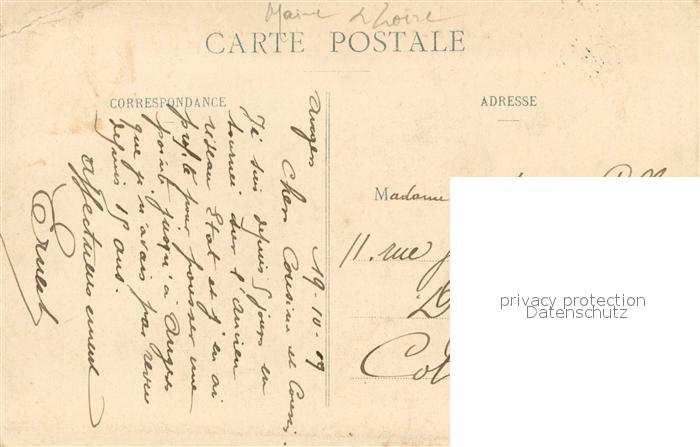 Maine & Loire
CARTE POSTALE
CORRESPONDANCE
ADRESSE
Angers 19-10-09
Cher Cousine et Cousin.
Je suis depuis 5 jours en
tournée sur l'Ancien
réseau Etat et j'en ai
profité pour pousser une
pointe jusqu'à Angers
que je n'avais pas revu
depuis 15 ans.
Affectueusement
Ernest
Madame
11. rue
Col
privacy protection
Datenschutz